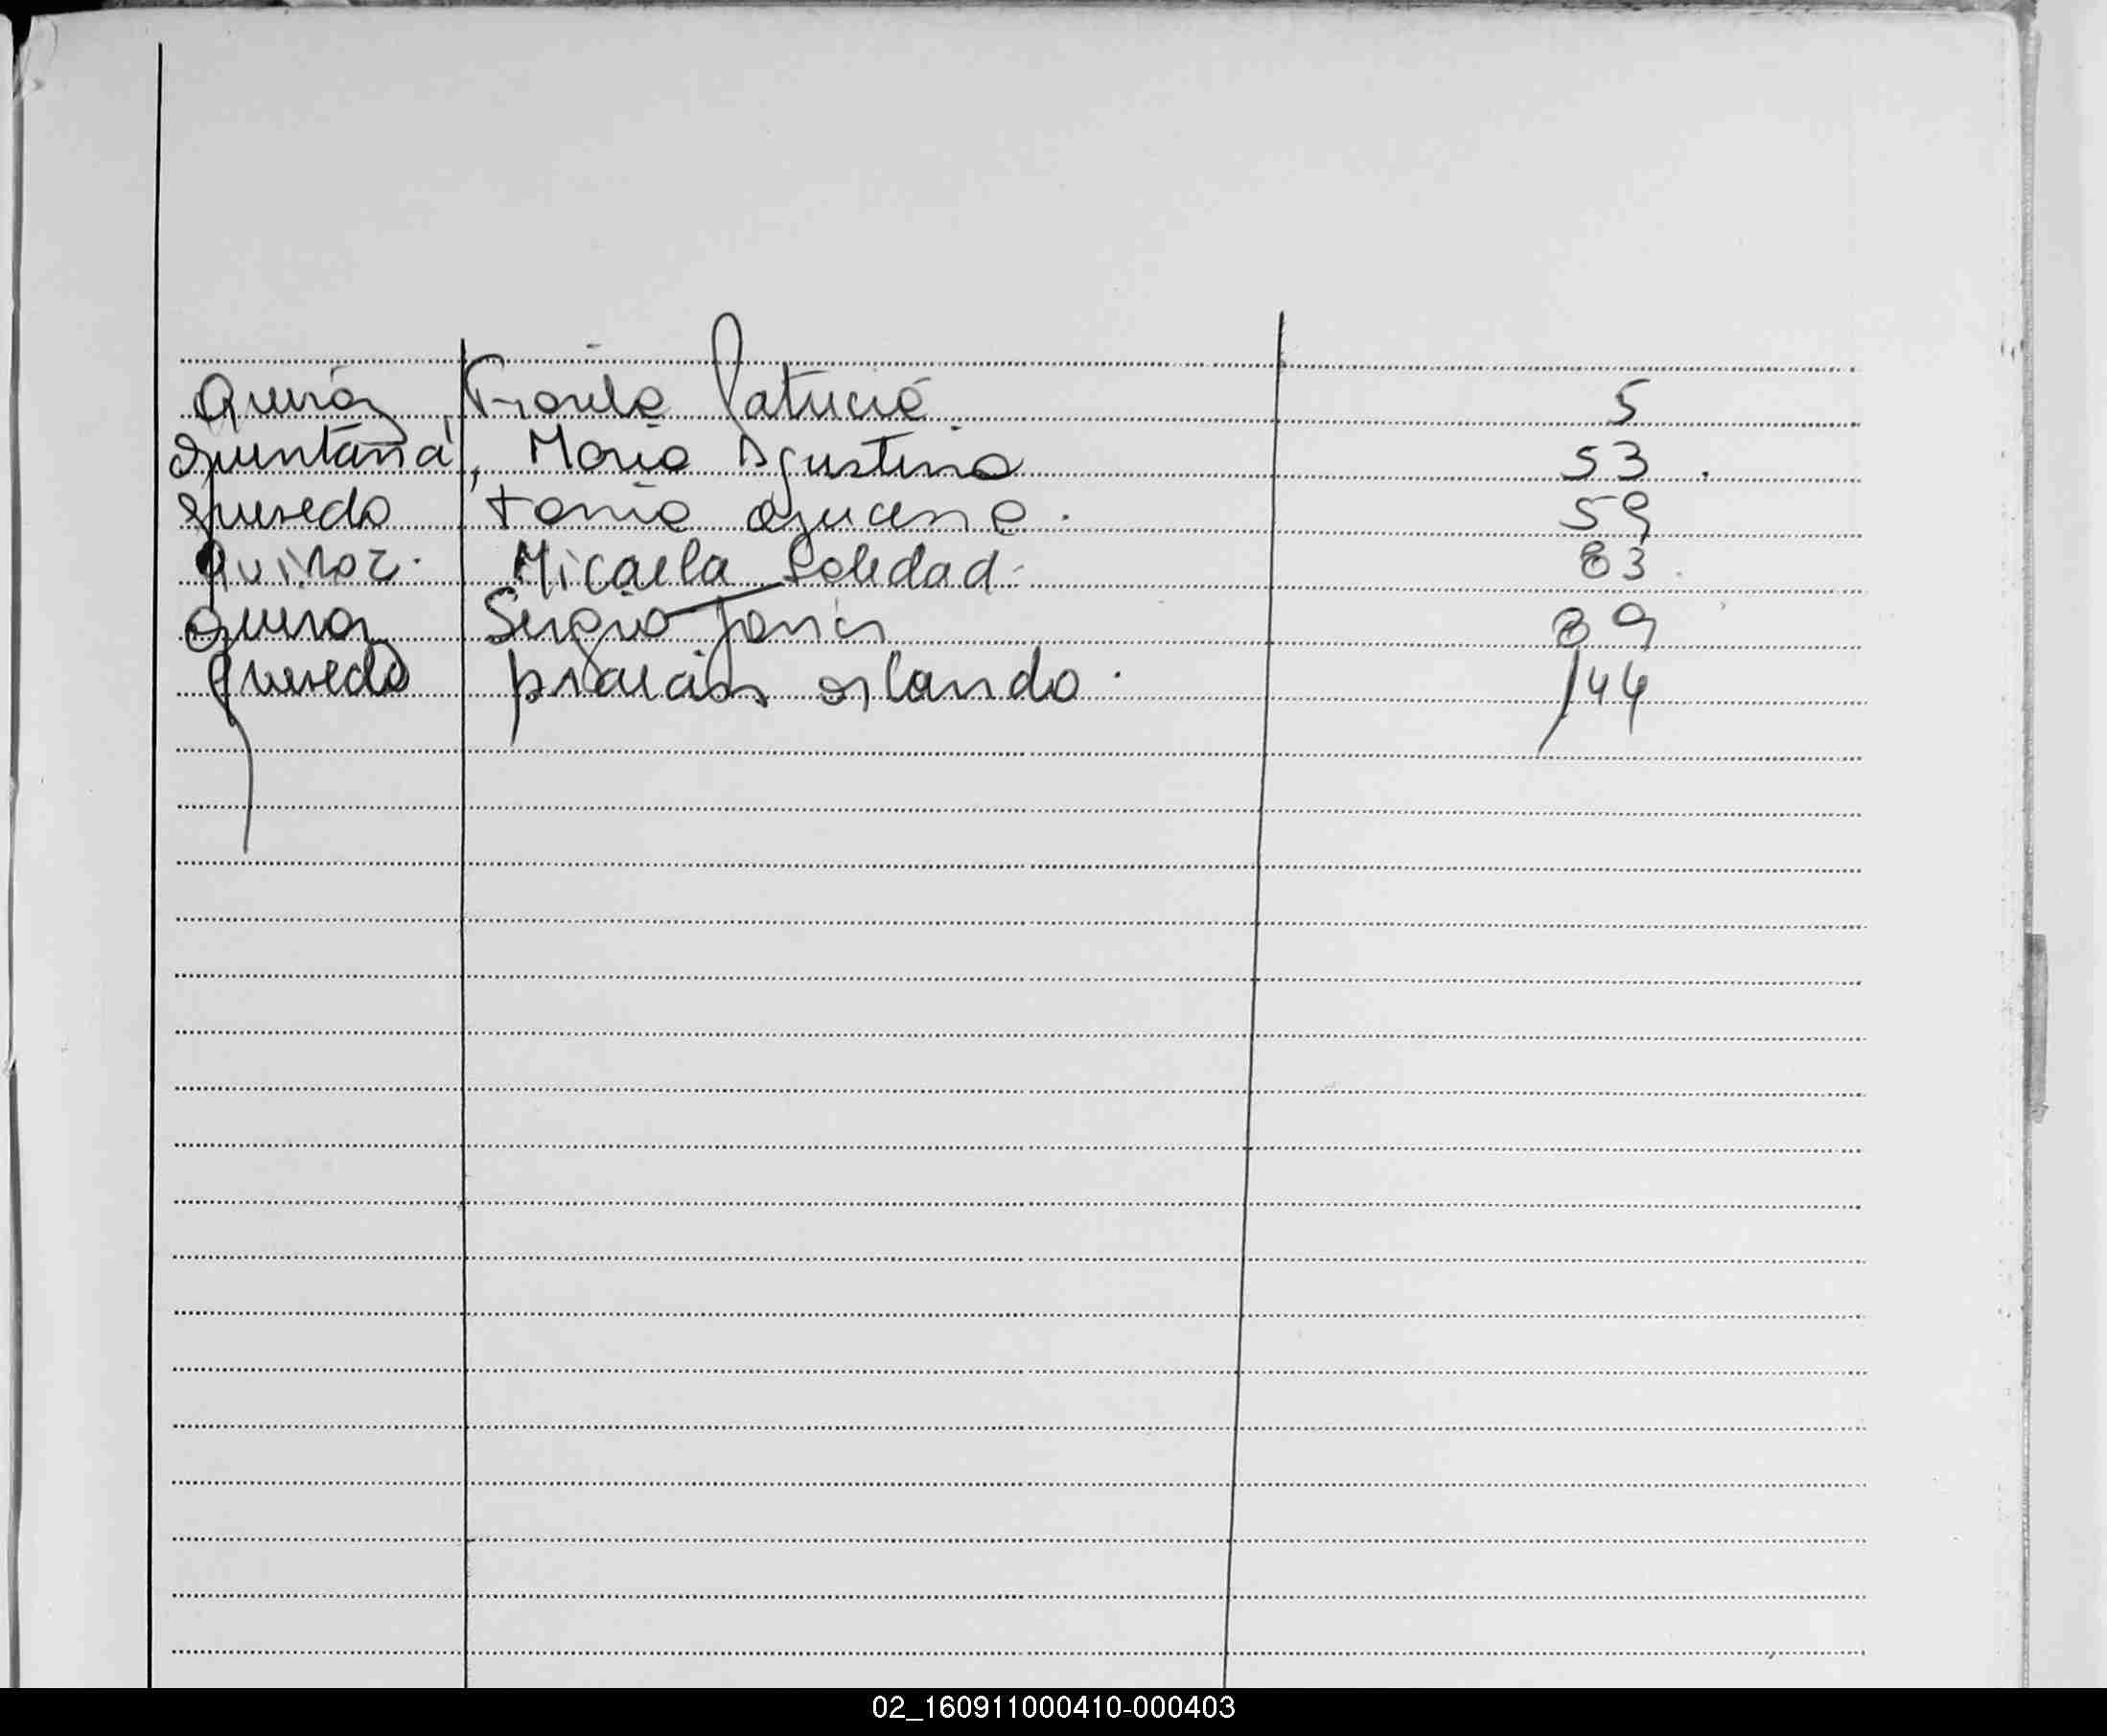 Quiroz Fiorela Patricia 5
Quintana, Maria Agustina 53.
Quevedo Tania Azucena. 59
Quiroz. Micaela Soledad. 83
Quiroz Sergio Javier 89
Quevedo orlando. 144
02_160911000410-000403